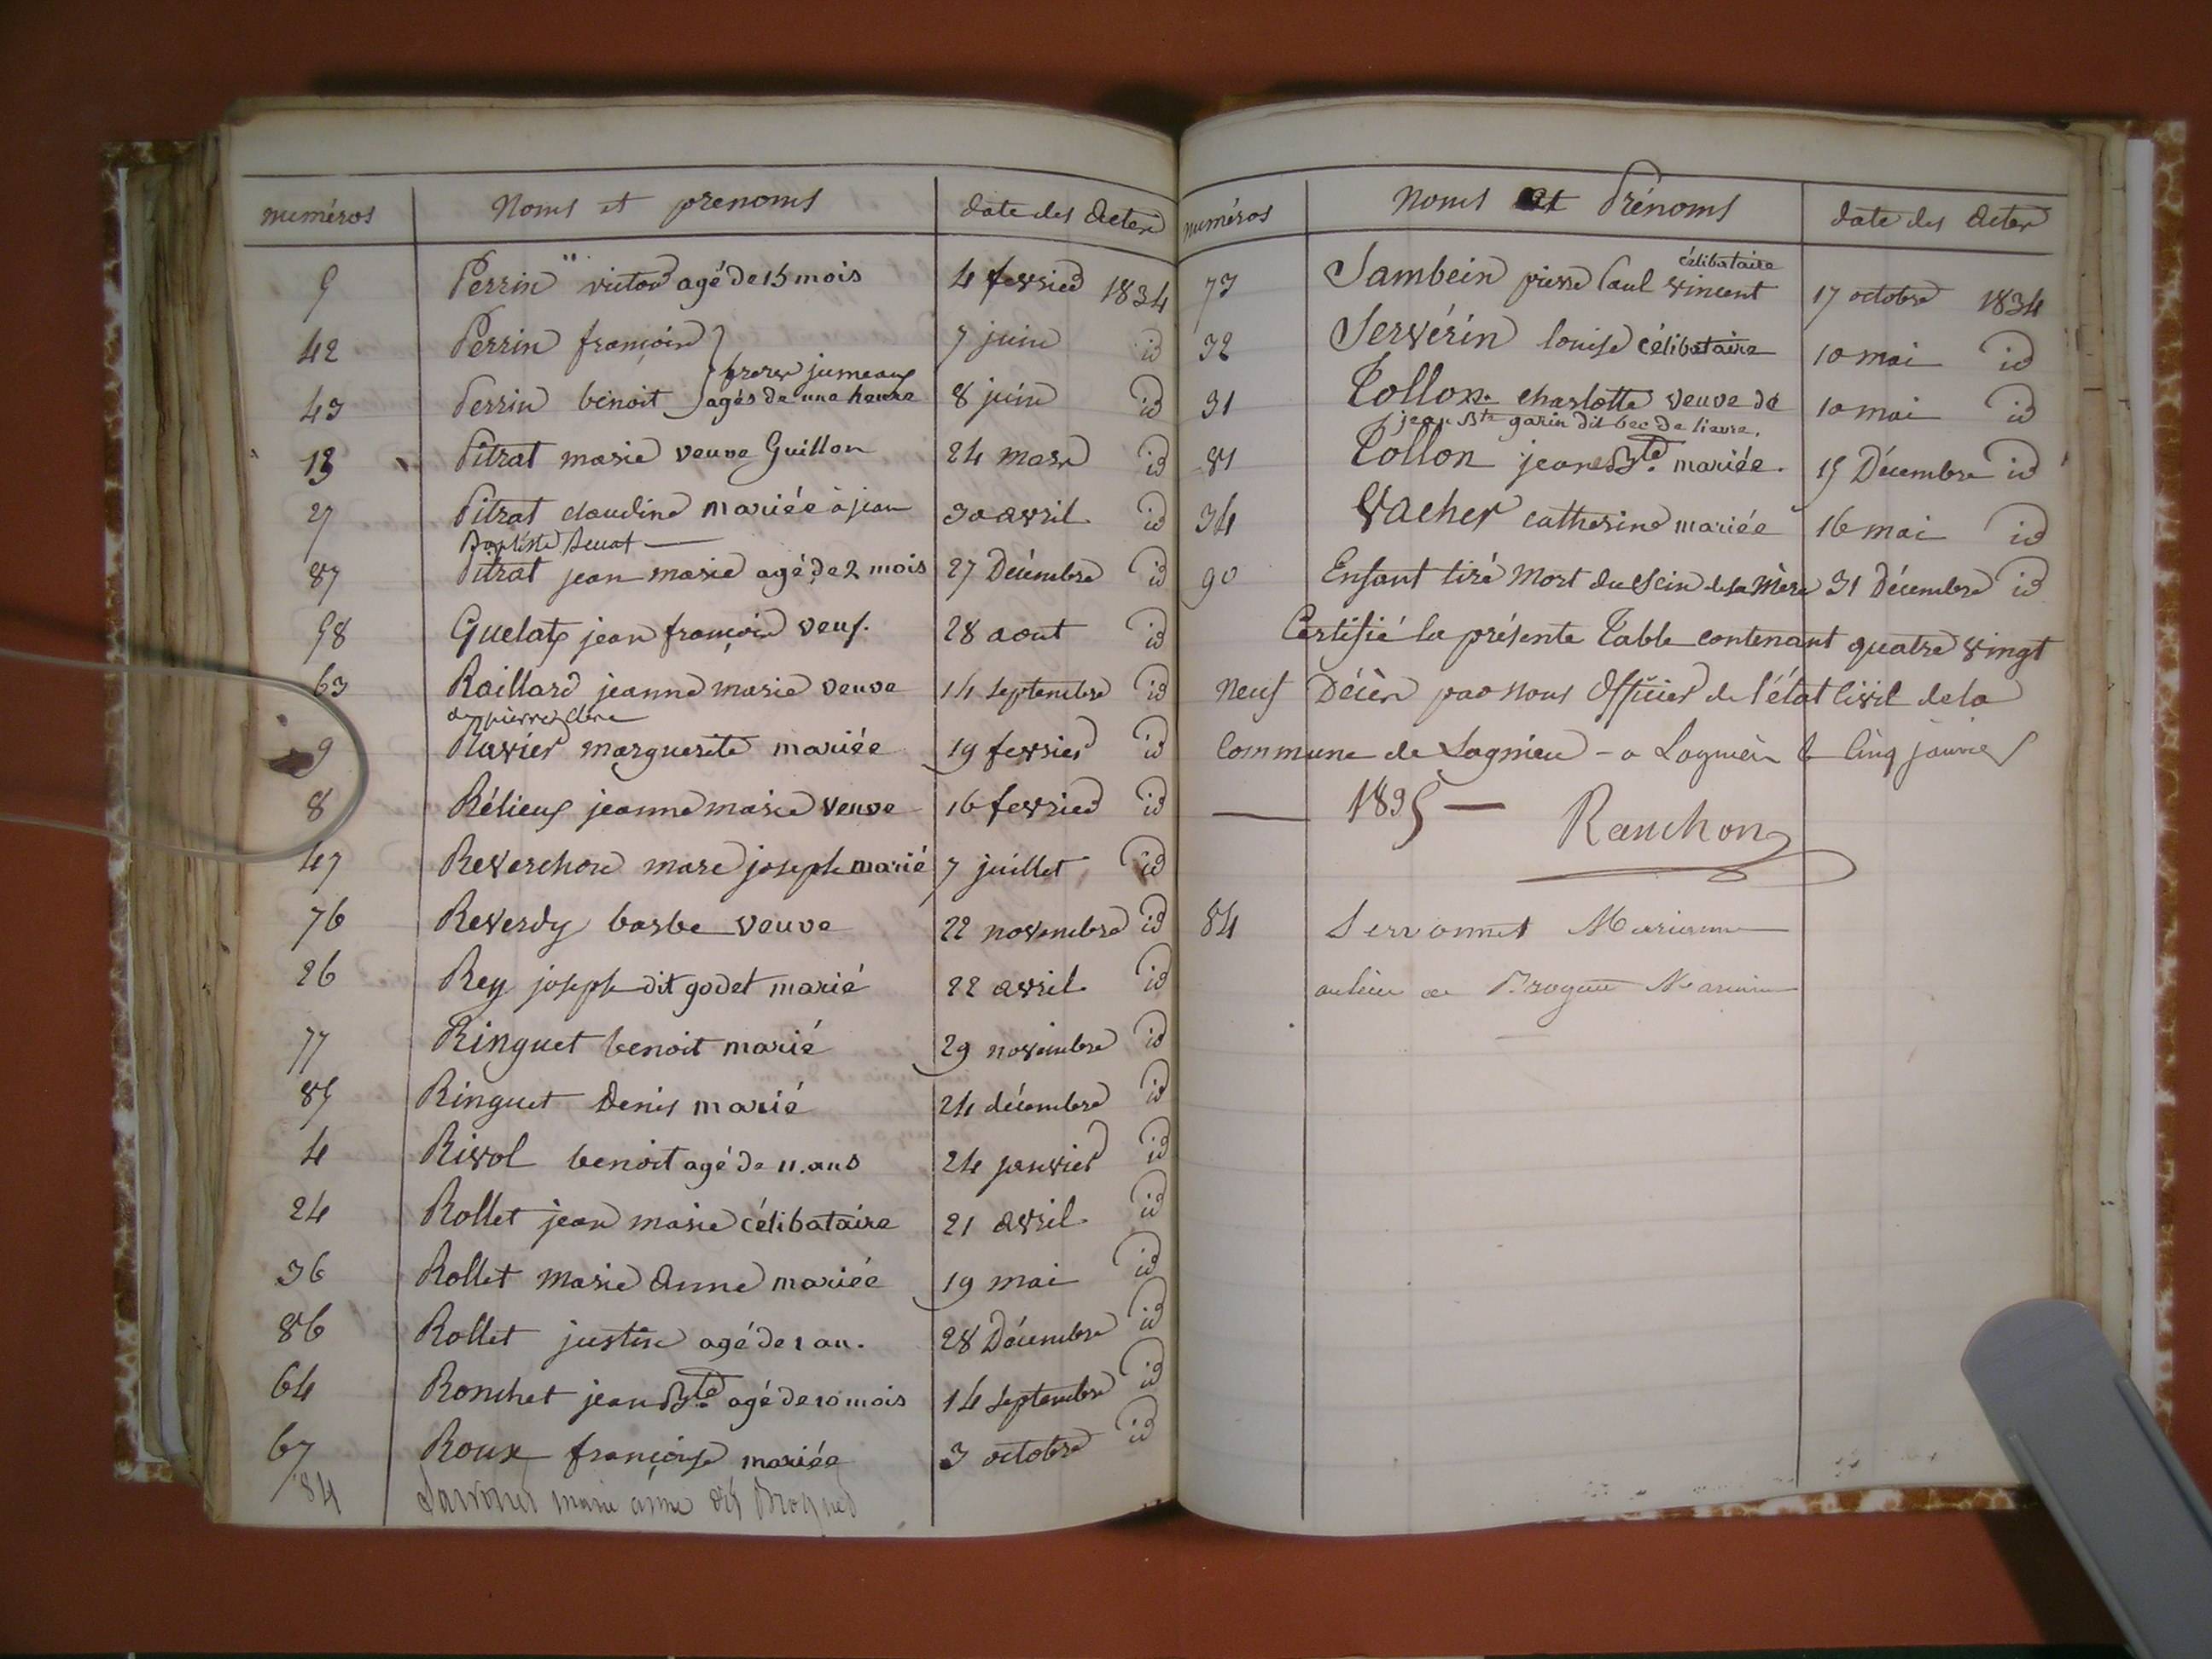 numéros Noms et prenoms date des actes
5 Perrin victor agé de 15 mois 4 fevrier 1834
42 Perrin françois 7 juin id
freres jumeaux
43 Perrin benoit agés de une heure 8 juin id
13 Pitrat marie veuve Guillon 24 mars id
27 Pitrat claudine mariée à jean 30 avril id
Baptiste
87 Pitrat jean marie agé de 2 mois 27 Decembre id
58 Guelat jean françois veuf. 28 aout id
63 Raillard jeanne marie veuve 14 septembre id
de pierre
9 Ravier marguerite mariée 19 fevrier id
8 Rélieux jeanne marie veuve 16 fevrier id
47 Reverchon marc joseph marié 7 juillet id
76 Reverdy barbe veuve 22 novembre id
26 Rey joseph dit godet marié 22 avril id
77 Ringuet benoit marié 29 novembre id
85 Ringuet Denis marié 24 décembre id
4 Rivol benoit agé de 11. ans 24 janvier id
24 Rollet jean marie célibataire 21 avril id
36 Rollet marie Anne mariée 19 mai id
86 Rollet justin agé de 1 an. 28 Décembre id
64 Ronchet jean Bte agé de 10 mois 14 septembre id
67 Roux françoise mariée 3 octobre id
84 marie anne dit
numéros Noms et Prénoms date des actes
célibataire
73 Sambein pierre Paul vincent 17 octobre 1834
32 Servérin louise célibataire 10 mai id
31 Tollon charlotte veuve de 10 mai id
jean Bte garin dit bec de lievre.
81 Tollon jeane Bte mariée. 15 Décembre id
34 Vacher catherine mariée 16 mai id
90 Enfant tiré Mort du Sein de sa Mère 31 Décembre id
Certifié la présente Table contenant quatre vingt
neuf Décès par nous Officier de l'état Civil de la
Commune de Lagnieu - a Lagnieu le Cinq janvier
1835 - Ranchon
84 Servonnet Marianne
au lieu de